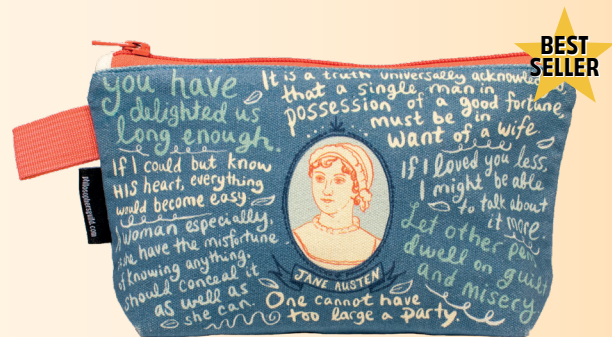 BEST
SELLER
you have
delighted us
long enough.
It is a truth universally acknowled
that a single man in
possession of a good fortune
must be in
want of a wife.
If I could but know
HIS heart, everything
would become easy.
If I loved you less,
I might be able
to talk about
it more.
woman especially,
she have the misfortune
of knowing anything,
should conceal it
as well as
she can.
Let other pen
dwell on guilt
and misery
JANE AUSTEN
One cannot have
too large a party.
philosophersguild.com